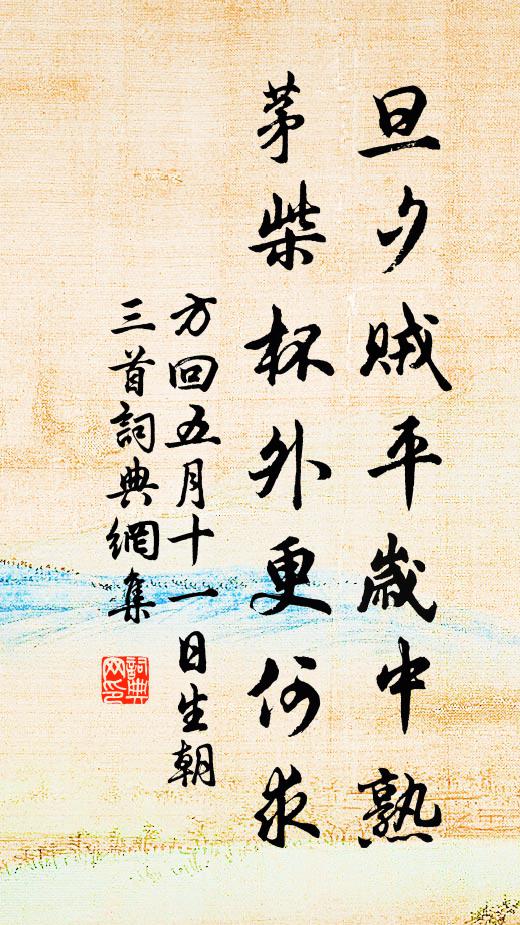 旦夕贼平歲中熟
茅柴杯外更何求
方回五月十一日生朝
三首詞典網集
詞典
网印